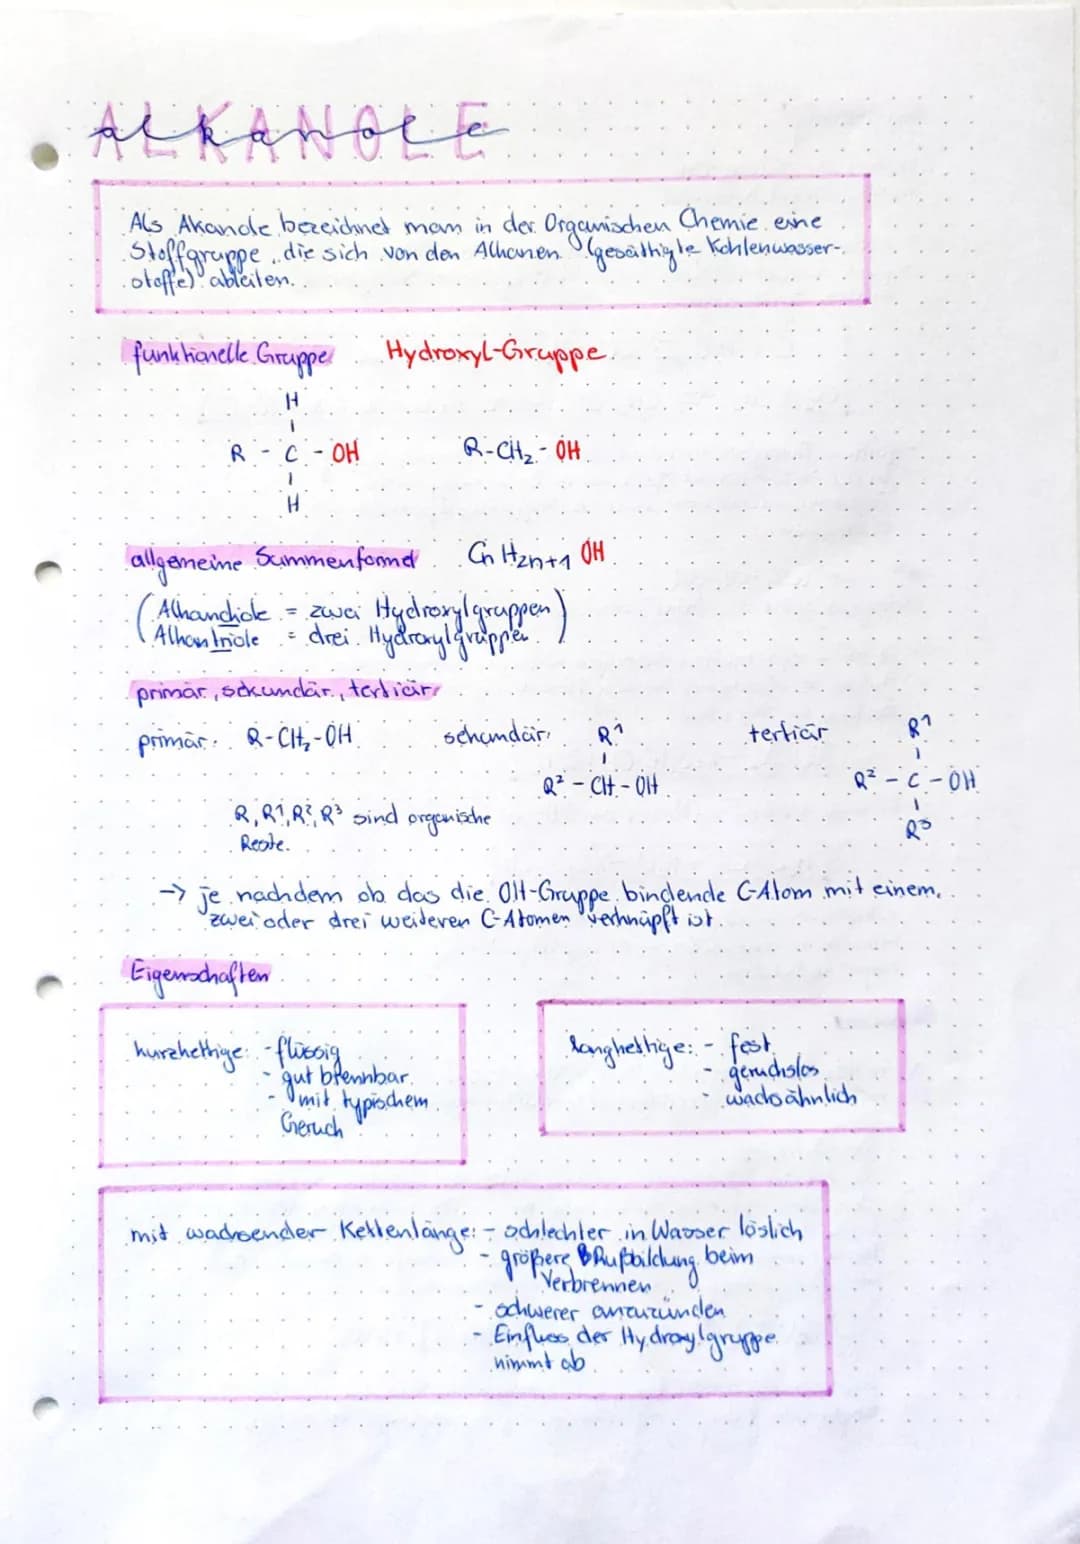 ALKANOLE
alkanole
Als Akanole bezeichnet man in der Organischen Chemie eine
Stoffgruppe, die sich von den Alkanen (gesäthigte Kohlenwasser-
stoffe) ableiten.
funktionelle Gruppe Hydroxyl-Gruppe
H
R - C - OH R-CH₂-OH
H
allgemeine Summenformel CnH2n+1 OH
(Alkandiole = zwei Hydroxylgruppen)
(Alkantriole = drei Hydroxylgruppen)
primär, sekundär, tertiär
primär: R-CH₂-OH sekundär: R¹ tertiär R¹
R² - CH - OH R² - C - OH
R, R¹, R², R³ sind organische R³
Reste.
→ je nachdem ob das die OH-Gruppe bindende C-Atom mit einem,
zwei oder drei weiteren C-Atomen verknüpft ist.
Eigenschaften
kurzkettige: - flüssig
- gut brennbar
- mit typischem
Geruch
langkettige: - fest
- geruchslos
- wachsähnlich
mit wachsender Kettenlänge: - schlechter in Wasser löslich
- größere Rußbildung beim
Verbrennen
- schwerer anzuzünden
- Einfluss der Hydroxylgruppe
nimmt ab